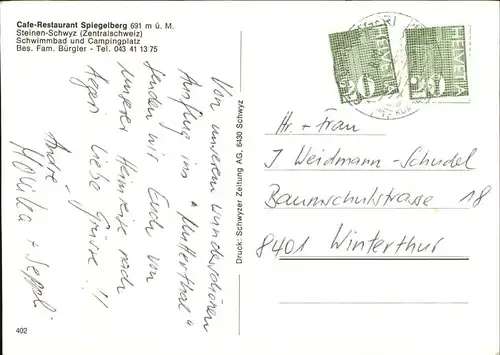 Cafe-Restaurant Spiegelberg 691 m ü. M.
Steinen-Schwyz (Zentralschweiz)
Schwimmbad und Campingplatz
Bes. Fam. Bürgler - Tel. 043 41 13 75
Von unserem wunderschönen
Ausflug ins "Mutterthal"
senden wir Euch von
unserer Heimreise nach
Aegeri liebe Grüsse !!
André
Monika + Seppli
402
Druck: Schwyzer Zeitung AG, 6430 Schwyz
HELVETIA
20
HELVETIA
20
Hr. + Frau
J Weidmann-Schudel
Baumschulstrasse 18
8401 Winterthur